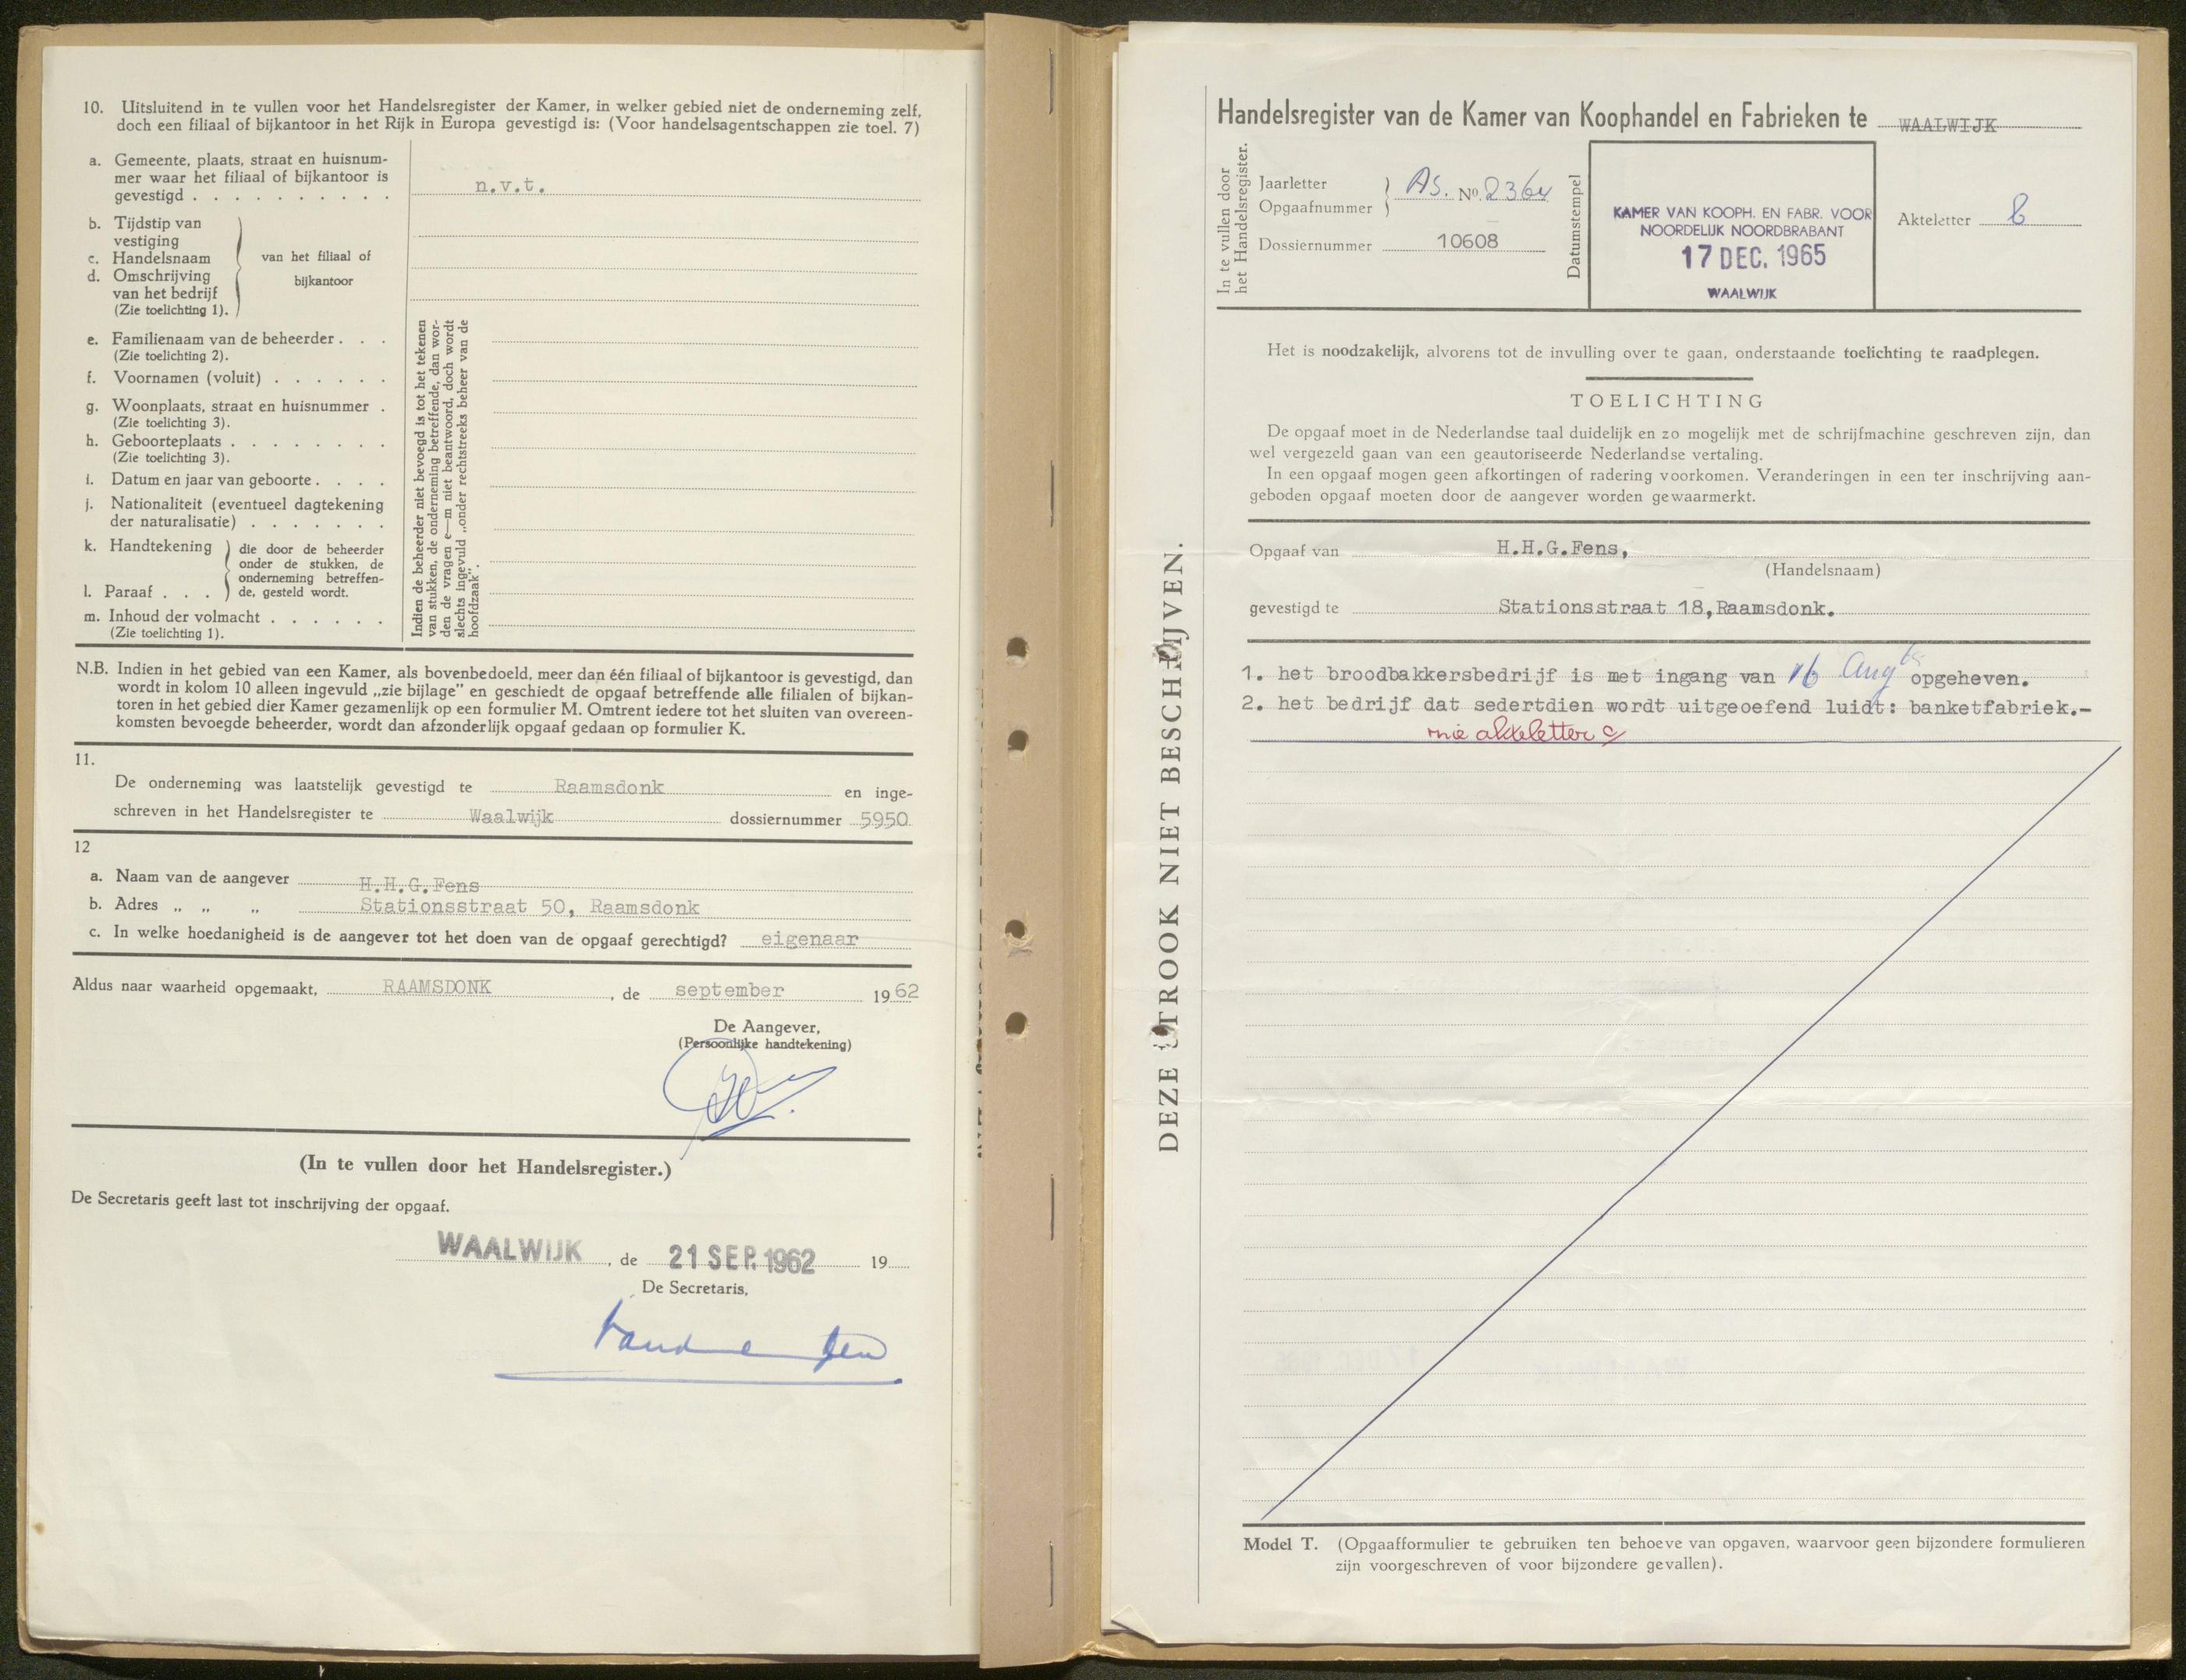 10. Uitsluitend in te vullen voor het Handelsregister der Kamer, in welker gebied niet de onderneming zelf,
doch een filiaal of bijkantoor in het Rijk in Europa gevestigd is: (Voor handelsagentschappen zie toel. 7)
a. Gemeente, plaats, straat en huisnum-
mer waar het filiaal of bijkantoor is
gevestigd . . . . . . . . . . n.v.t.
b. Tijdstip van
vestiging
c. Handelsnaam van het filiaal of
d. Omschrijving bijkantoor
van het bedrijf
(Zie toelichting 1).
e. Familienaam van de beheerder . . .
(Zie toelichting 2).
f. Voornamen (voluit) . . . . . .
g. Woonplaats, straat en huisnummer .
(Zie toelichting 3).
h. Geboorteplaats . . . . . . . .
(Zie toelichting 3).
i. Datum en jaar van geboorte . . . .
j. Nationaliteit (eventueel dagtekening
der naturalisatie) . . . . . . .
k. Handtekening die door de beheerder
onder de stukken, de
onderneming betreffen-
l. Paraaf . . . de, gesteld wordt.
m. Inhoud der volmacht . . . . . .
(Zie toelichting 1).
Indien de beheerder niet bevoegd is tot het tekenen
van stukken, de onderneming betreffende, dan wor-
den de vragen e—m niet beantwoord, doch wordt
slechts ingevuld „onder rechtstreeks beheer van de
hoofdzaak".
N.B. Indien in het gebied van een Kamer, als bovenbedoeld, meer dan één filiaal of bijkantoor is gevestigd, dan
wordt in kolom 10 alleen ingevuld „zie bijlage" en geschiedt de opgaaf betreffende alle filialen of bijkan-
toren in het gebied dier Kamer gezamenlijk op een formulier M. Omtrent iedere tot het sluiten van overeen-
komsten bevoegde beheerder, wordt dan afzonderlijk opgaaf gedaan op formulier K.
11.
De onderneming was laatstelijk gevestigd te Raamsdonk en inge-
schreven in het Handelsregister te Waalwijk dossiernummer 5950
12
a. Naam van de aangever H.H.G.Fens
b. Adres „ „ „ Stationsstraat 50, Raamsdonk
c. In welke hoedanigheid is de aangever tot het doen van de opgaaf gerechtigd? eigenaar
Aldus naar waarheid opgemaakt, RAAMSDONK , de september 1962
De Aangever,
(Persoonlijke handtekening)
(In te vullen door het Handelsregister.)
De Secretaris geeft last tot inschrijving der opgaaf.
WAALWIJK , de 21 SEP. 1962 19
De Secretaris,
Handelsregister van de Kamer van Koophandel en Fabrieken te WAALWIJK
In te vullen door
het Handelsregister.
Jaarletter
Opgaafnummer AS. No. 2364
Dossiernummer 10608
Datumstempel
KAMER VAN KOOPH. EN FABR. VOOR
NOORDELIJK NOORDBRABANT
17 DEC. 1965
WAALWIJK
Akteletter b
Het is noodzakelijk, alvorens tot de invulling over te gaan, onderstaande toelichting te raadplegen.
TOELICHTING
De opgaaf moet in de Nederlandse taal duidelijk en zo mogelijk met de schrijfmachine geschreven zijn, dan
wel vergezeld gaan van een geautoriseerde Nederlandse vertaling.
In een opgaaf mogen geen afkortingen of radering voorkomen. Veranderingen in een ter inschrijving aan-
geboden opgaaf moeten door de aangever worden gewaarmerkt.
Opgaaf van H.H.G.Fens,
(Handelsnaam)
gevestigd te Stationsstraat 18,Raamsdonk.
1. het broodbakkersbedrijf is met ingang van 16 Aug opgeheven.
2. het bedrijf dat sedertdien wordt uitgeoefend luidt: banketfabriek.-
akteletter c
DEZE STROOK NIET BESCHRIJVEN.
Model T. (Opgaafformulier te gebruiken ten behoeve van opgaven, waarvoor geen bijzondere formulieren
zijn voorgeschreven of voor bijzondere gevallen).